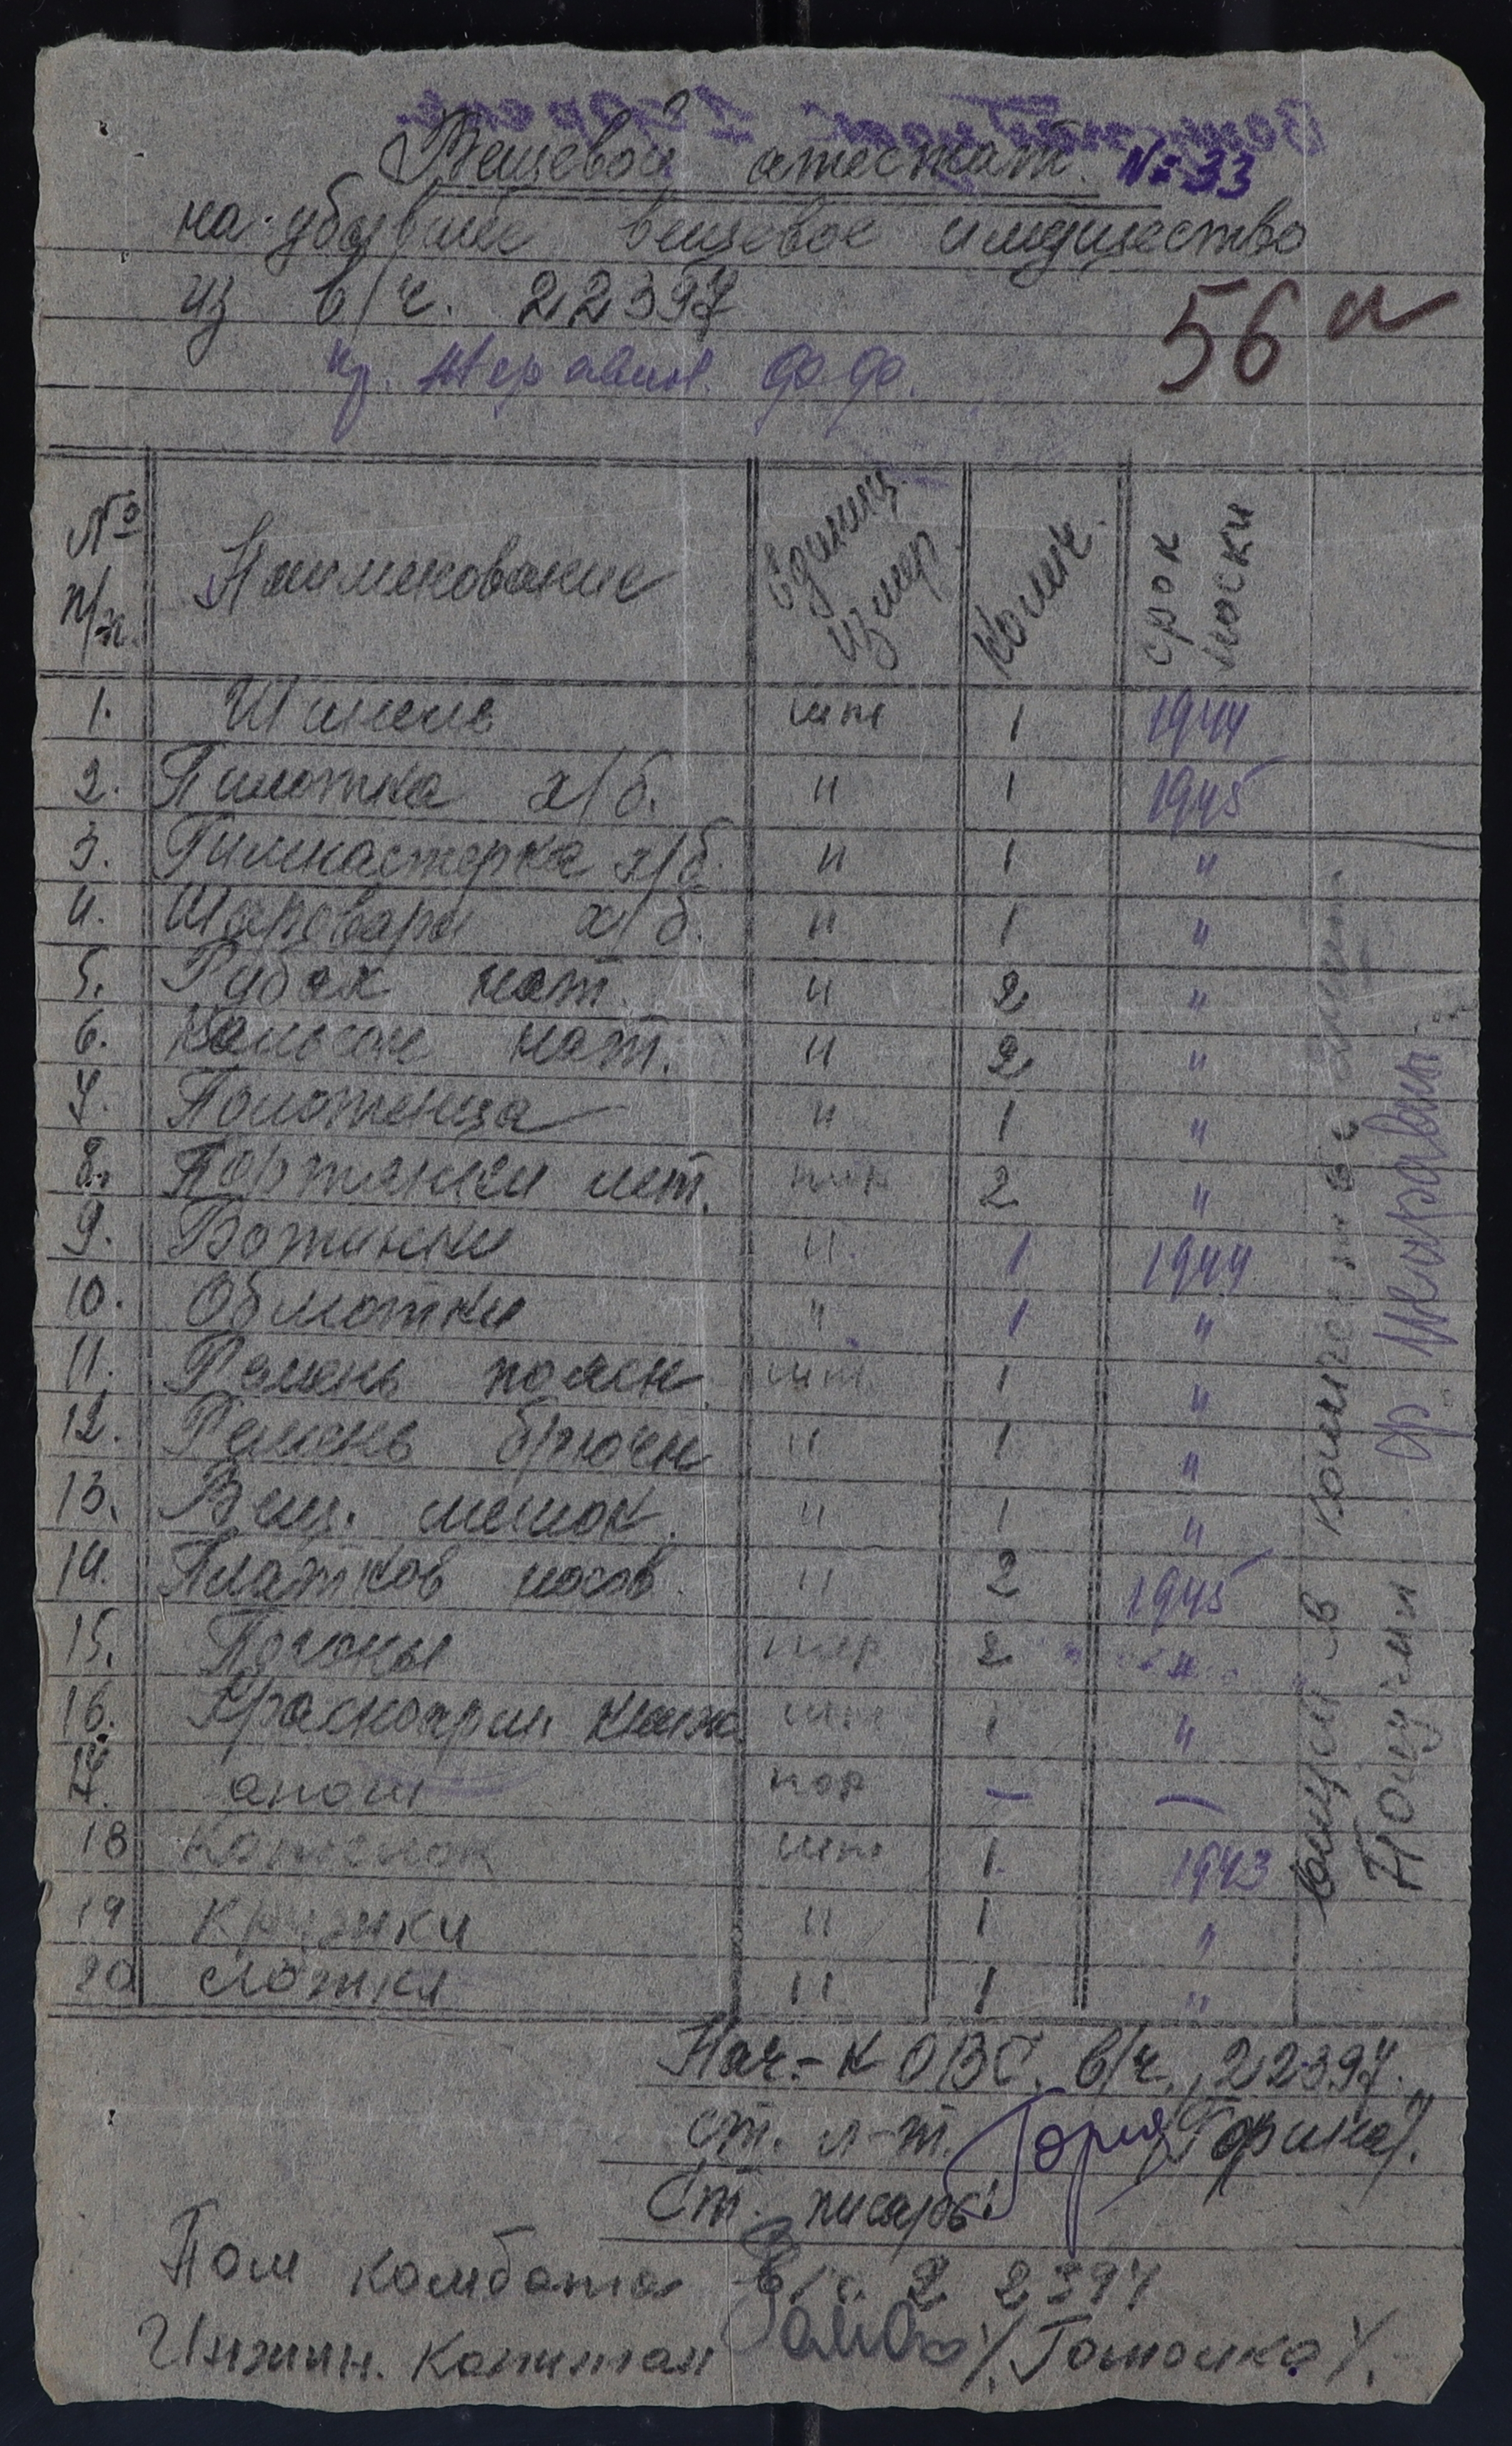 Вещевой атестат № 33
на убывшее вещевое имущество
из в/ч. 22397
56
№ п/п. Наименование Единиц измер. Колич. срок носки
1. Шинель шт 1 1944
2. Пилотка х/б. " 1 1945
3. Гимнастерка х/б. " 1 "
4. Шаровары х/б. " 1 "
5. Рубах нат. " 2 "
6. Кальсон нат. " 2 "
7. Полотенца " 1 "
8. Портянки лет. пар 2 "
9. Ботинки " 1 1944
10. Обмотки " 1 "
11. Ремень поясн. шт. 1 "
12. Ремень брючн " 1 "
13. Вещ. мешок. " 1 "
14. Платков носов. " 2 1945
15. Погоны пар 2 "
16. Красноарм. книж шт 1 "
17. пар — —
18 Котелок шт 1. 1943
19 Кружки " 1 "
20 Ложка " 1 "
Получил
Нач-к ОВС. в/ч. 22397.
ст. л-т. /Горина/.
Ст. писарь:
Пом комбата в/ч. 22397
Инжин. Капитан